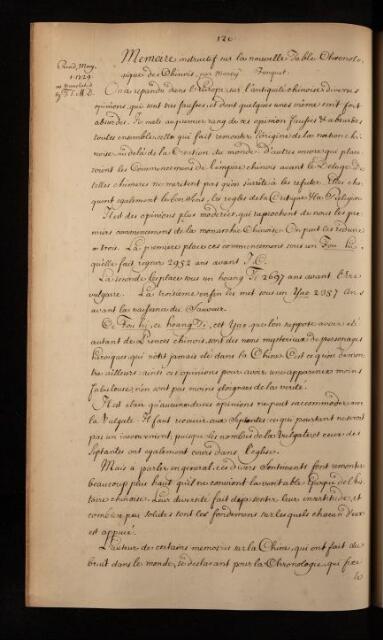 120
Memoire instructif sur la nouvelle Table Chronolo-
gique des Chinois, par Monsgr Fouquet.
On a repandu dans l'Europe sur l'antiquité chinoise diverses
opinions, qui sont tres fausses, et dont quelques unes même sont fort
absurdes. Je mets au premier rang de ces opinions fausses & absurdes
toutes ensemble, celle qui fait remonter l'origine de la nation chi-
noise au delà de la Creation du monde. D'autres encore qui place-
roient les Commencemens de l'empire chinois avant le Deluge. De
telles chimeres ne meritent pas qu'on s'arrête à les refuter. Elles cho-
quent egalement le bon sens, les regles de la Critique & la Religion.
Il est des opinions plus moderées, qui raprochent de nous les pre-
miers commencemens de la monarchie Chinoise. On peut les reduire
à trois. La premiere place ces commencemens sous un Fou hi,
qu'elle fait regner 2952 ans avant J. C.
La seconde les place sous un hoang Ti 2697 ans avant l'Ere
vulgaire. La troisieme enfin les met sous un Yao 2357 ans
avant la naissance du Sauveur.
Ce Fou hi, ce hoang Ti, cet Yao que l'on suppose avoir eté
autant de Princes chinois, sont des noms mysterieux de personages
heroiques qui n'ont jamais eté dans la Chine. C'est ce qu'on demon-
tre ailleurs: ainsi ces opinions pour avoir une apparence moins
fabuleuse, n'en sont pas moins eloignées de la verité.
Il est clair qu'aucune de ces opinions ne peut s'accommoder avec
la Vulgate. Il faut recourir aux Septantes: ce qui pourtant ne seroit
pas un inconvenient, puisque les nombres de la Vulgate et ceux des
Septantes ont egalement cours dans l'eglise.
Mais à parler en general, ces divers Sentiments font remonter
beaucoup plus haut qu'il ne convient la veritable Epoque de l'his-
toire chinoise. Leur diversité fait deja sentir leur incertitude, et
combien peu solides sont les fondemens sur lesquels chacun d'eux
est appuié.
L'auteur de certains memoires sur la Chine, qui ont fait du
bruit dans le monde, se declarant pour la Chronologie, qui fixe
le